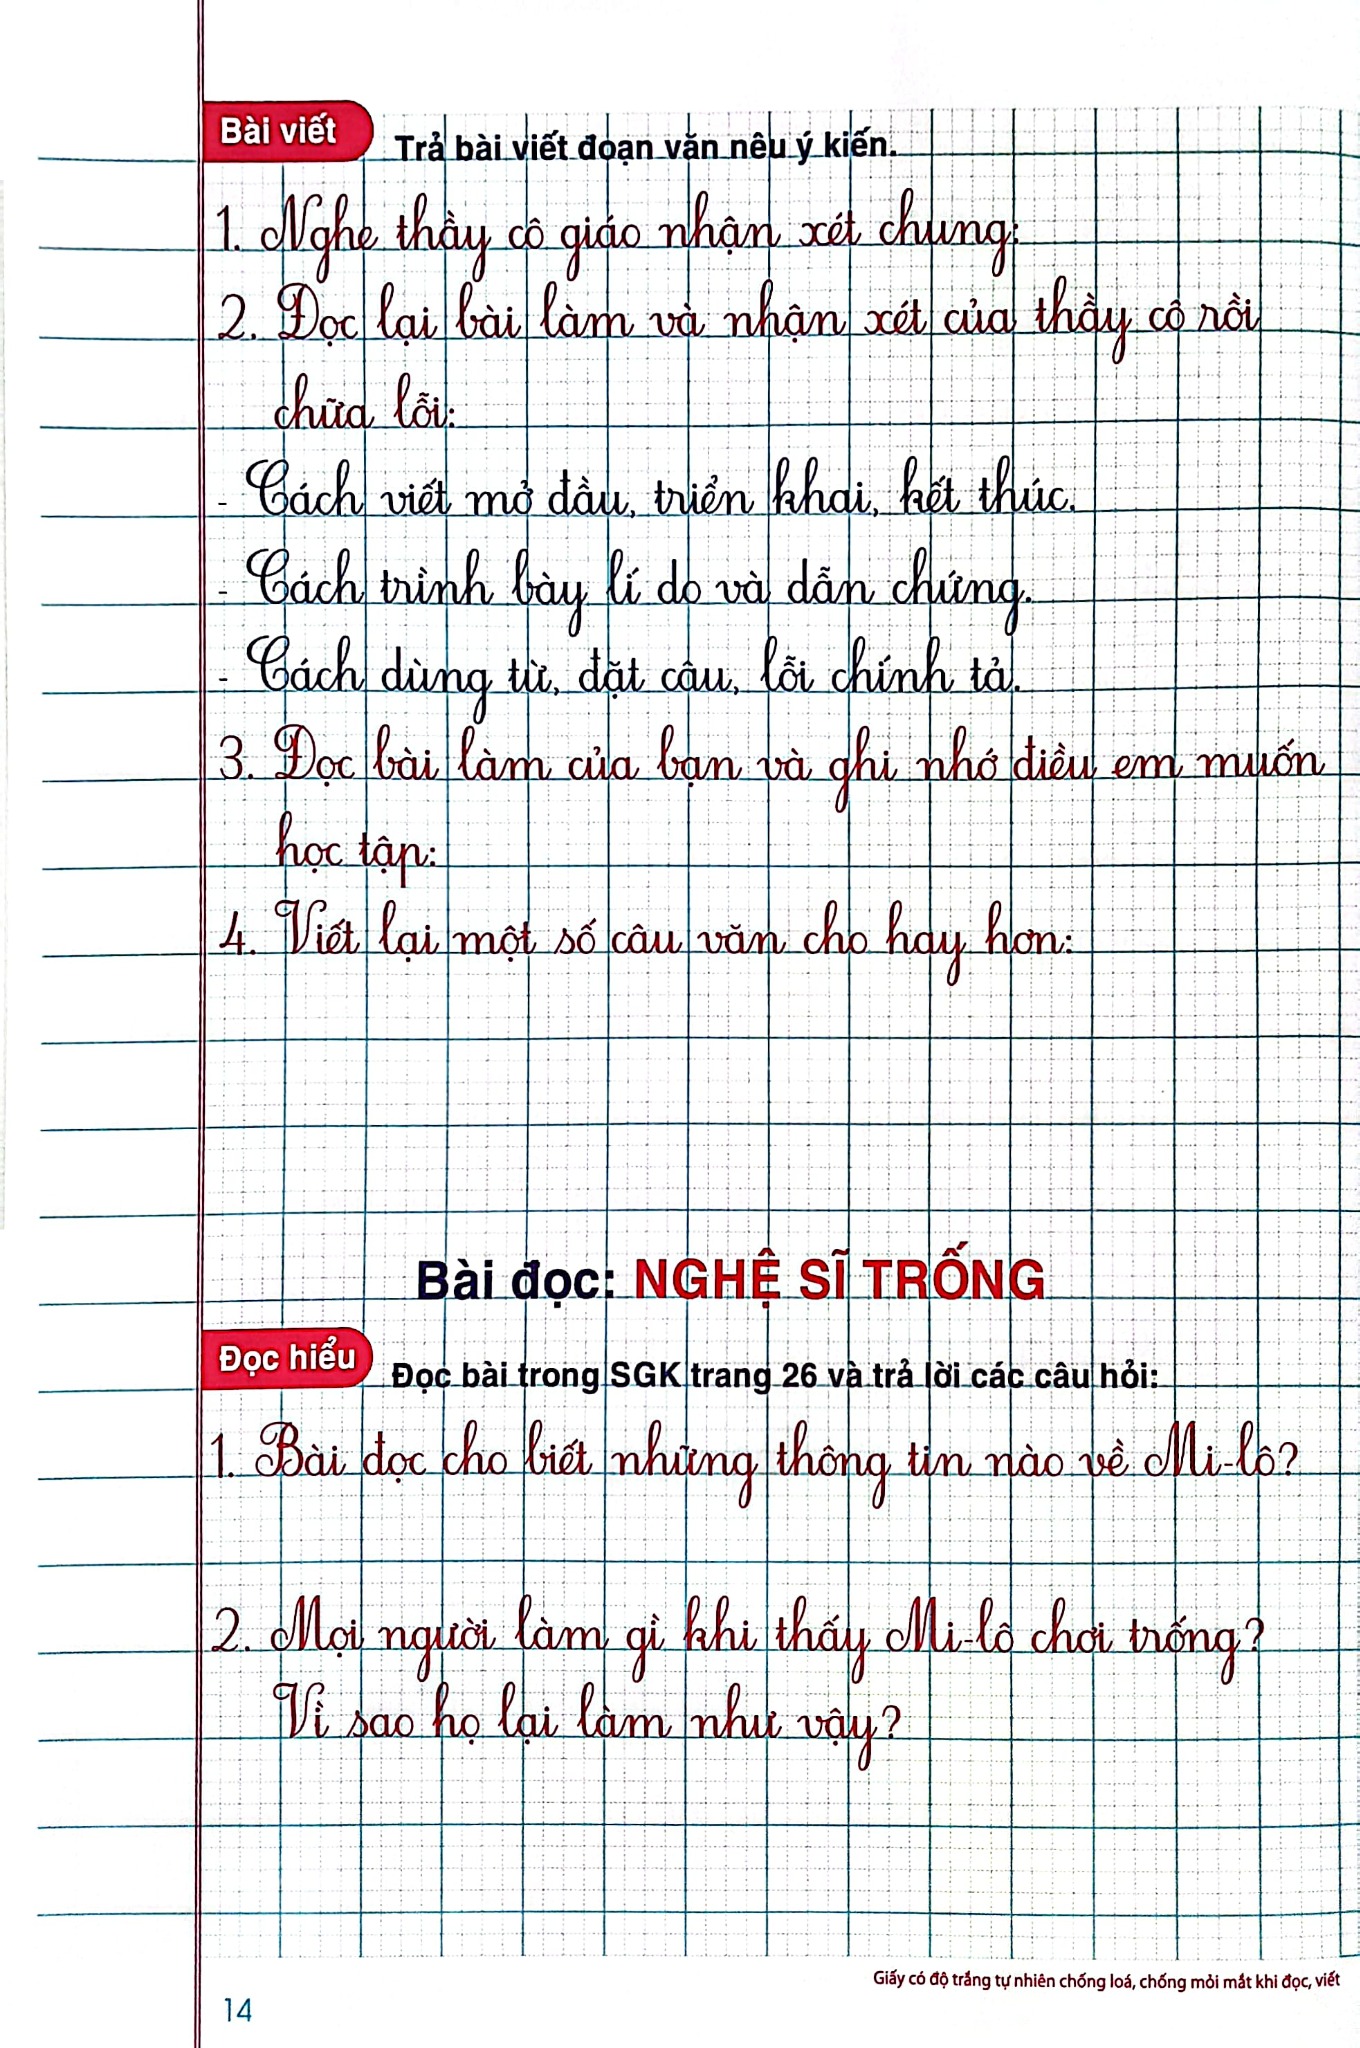 Bài viết
Trả bài viết đoạn văn nêu ý kiến.
1. Nghe thầy cô giáo nhận xét chung:
2. Đọc lại bài làm và nhận xét của thầy cô rồi
chữa lỗi:
- Cách viết mở đầu, triển khai, kết thúc.
- Cách trình bày lí do và dẫn chứng.
- Cách dùng từ, đặt câu, lỗi chính tả.
3. Đọc bài làm của bạn và ghi nhớ điều em muốn
học tập:
4. Viết lại một số câu văn cho hay hơn:
Bài đọc: NGHỆ SĨ TRỐNG
Đọc hiểu
Đọc bài trong SGK trang 26 và trả lời các câu hỏi:
1. Bài đọc cho biết những thông tin nào về Mi-lô?
2. Mọi người làm gì khi thấy Mi-lô chơi trống?
Vì sao họ lại làm như vậy?
Giấy có độ trắng tự nhiên chống loá, chống mỏi mắt khi đọc, viết
14